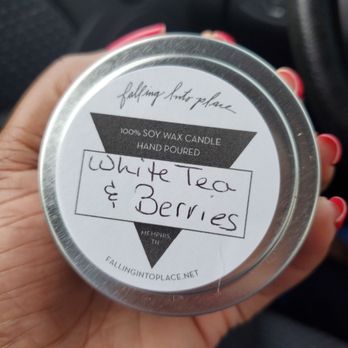 falling into place
100% SOY WAX CANDLE
HAND POURED
White Tea
& Berries
MEMPHIS
TN
FALLINGINTOPLACE.NET